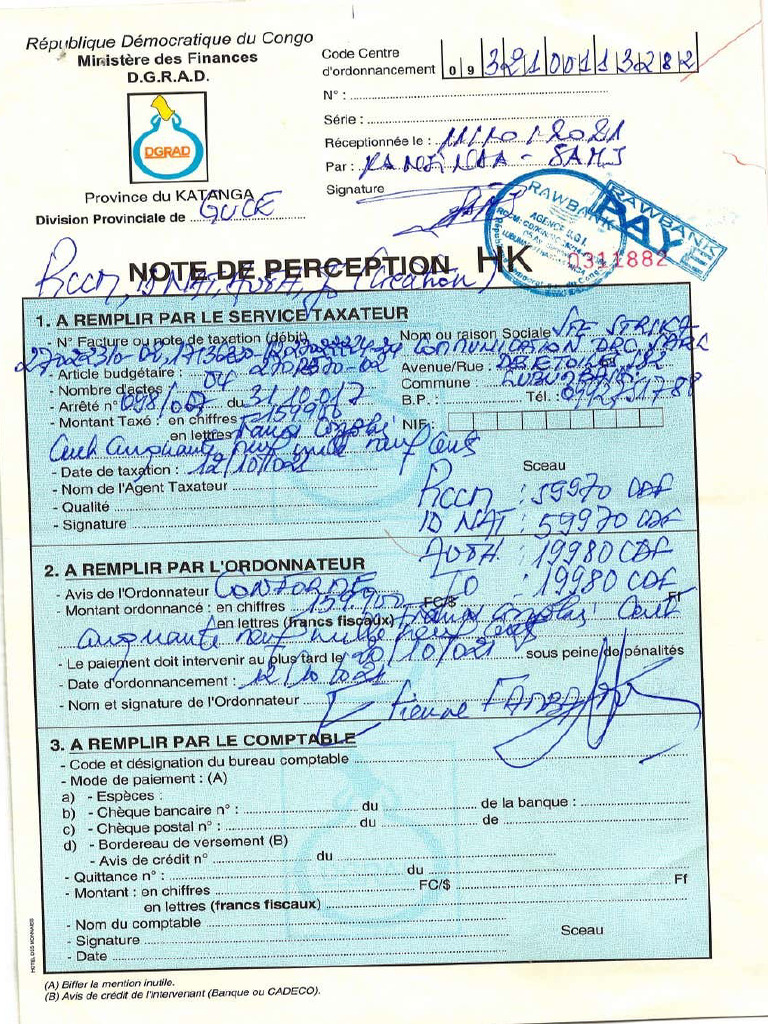 République Démocratique du Congo
Ministère des Finances
D.G.R.A.D.
DGRAD
Province du KATANGA
Division Provinciale de GUCE
Code Centre
d'ordonnancement 0 9 32100113282
N° :
Série :
Réceptionnée le : 11/10/2021
Par : - SAMI
Signature
RAWBANK
AGENCE
RAWBANK
PAYE
NOTE DE PERCEPTION HK 0311882
RCCM, ID NAT, (Création)
1. A REMPLIR PAR LE SERVICE TAXATEUR
- N° Facture ou note de taxation (débit)
- Article budgétaire :
- Nombre d'actes : 04
- Arrêté n° 098/007 du 31.10.017
- Montant Taxé : en chiffres 159900
en lettres Francs Congolais
Cent cinquante neuf mille neuf cents
- Date de taxation : 12/10/021
- Nom de l'Agent Taxateur
- Qualité
- Signature
Nom ou raison Sociale STE
COMMUNICATION DRC SARL
Avenue/Rue :
Commune :
B.P. : Tél. :
NIF :
Sceau
RCCM : 59970 CDF
ID NAT : 59970 CDF
AUTH : 19980 CDF
: 19980 CDF
2. A REMPLIR PAR L'ORDONNATEUR
- Avis de l'Ordonnateur CONFORME
- Montant ordonnancé : en chiffres 159.900 FC/$ Ff
en lettres (francs fiscaux) Francs Congolais Cent
cinquante neuf mille neuf cents
- Le paiement doit intervenir au plus tard le 20/10/021 sous peine de pénalités
- Date d'ordonnancement : 12/10/021
- Nom et signature de l'Ordonnateur Pierre
3. A REMPLIR PAR LE COMPTABLE
- Code et désignation du bureau comptable
- Mode de paiement : (A)
a) - Espèces :
b) - Chèque bancaire n° : du de la banque :
c) - Chèque postal n° : du de
d) - Bordereau de versement (B)
- Avis de crédit n° du
- Quittance n° : du
- Montant : en chiffres FC/$ Ff
en lettres (francs fiscaux)
- Nom du comptable
- Signature
- Date
Sceau
HOTEL DES MONNAIES
(A) Biffer la mention inutile.
(B) Avis de crédit de l'intervenant (Banque ou CADECO).